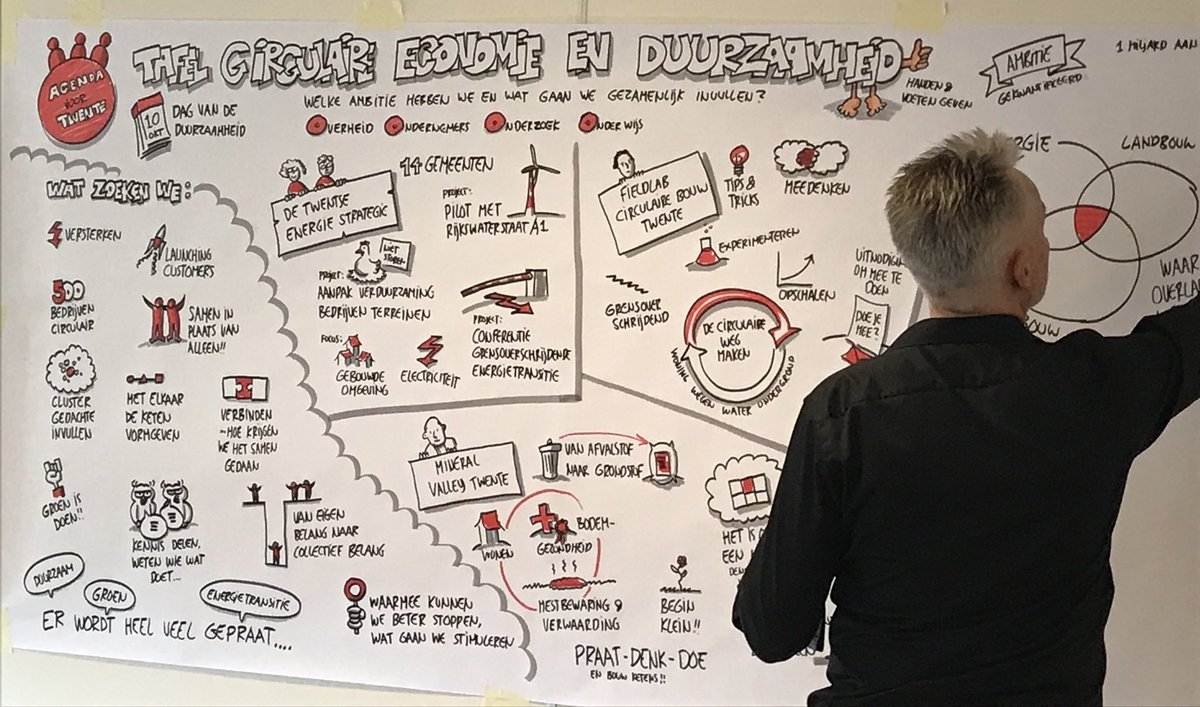 AGENDA
VOOR
TWENTE
TAFEL CIRCULAIRE ECONOMIE EN DUURZAAMHEID
HANDEN &
VOETEN GEVEN
AMBITIE
GEKWANTIFICEERD
1 MILJARD AAN
10
OKT
DAG VAN DE
DUURZAAMHEID
WELKE AMBITIE HEBBEN WE EN WAT GAAN WE GEZAMENLIJK INVULLEN?
OVERHEID
ONDERNEMERS
ONDERZOEK
ONDERWIJS
WAT ZOEKEN WE:
VERSTERKEN
LAUNCHING
CUSTOMERS
500
BEDRIJVEN
CIRCULAIR
SAMEN IN
PLAATS VAN
ALLEEN!!
CLUSTER
GEDACHTE
INVULLEN
MET ELKAAR
DE KETEN
VORMGEVEN
VERBINDEN
-HOE KRIJGEN
WE HET SAMEN
GEDAAN
GROEN IS
DOEN!!
KENNIS DELEN,
WETEN WIE WAT
DOET...
VAN EIGEN
BELANG NAAR
COLLECTIEF BELANG
DUURZAAM
GROEN
ENERGIETRANSITIE
ER WORDT HEEL VEEL GEPRAAT....
WAARMEE KUNNEN
WE BETER STOPPEN,
WAT GAAN WE STIMULEREN
DE TWENTSE
ENERGIE STRATEGIE
14 GEMEENTEN
PROJECT:
PILOT MET
RIJKSWATERSTAAT A1
NIET
STOREN
PROJECT:
AANPAK VERDUURZAMING
BEDRIJVEN TERREINEN
FOCUS:
GEBOUWDE
OMGEVING
ELECTRICITEIT
PROJECT:
CONFERENTIE
GRENSOVERSCHRIJDENDE
ENERGIETRANSITIE
FIELDLAB
CIRCULAIRE BOUW
TWENTE
TIPS &
TRICKS
MEEDENKEN
EXPERIMENTEREN
OPSCHALEN
GRENSOVER
SCHRIJDEND
DE CIRCULAIRE
WEG
MAKEN
WONING WEGEN WATER ONDERGROND
OM MEE TE
DOEN
DOE JE
MEE?
MINERAL
VALLEY TWENTE
VAN AFVALSTOF
NAAR GRONDSTOF
WONEN
BODEM-
GEZONDHEID
MESTBEWARING &
VERWAARDING
BEGIN
KLEIN!!
HET IS
EEN
PRAAT-DENK-DOE
EN BOUW KETENS!!
LANDBOUW